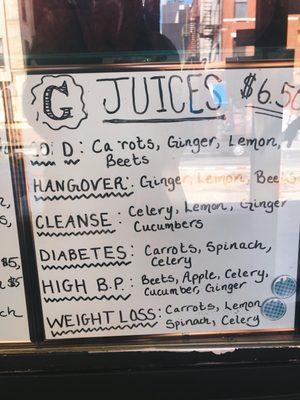 G JUICES $6.50
Carrots, Ginger, Lemon,
Beets
HANGOVER: Ginger, Lemon, Beets
CLEANSE: Celery, Lemon, Ginger
Cucumbers
DIABETES: Carrots, Spinach,
Celery
HIGH B.P.: Beets, Apple, Celery,
Cucumber, Ginger
WEIGHT LOSS: Carrots, Lemon
Spinach, Celery
$5,
$5
ch